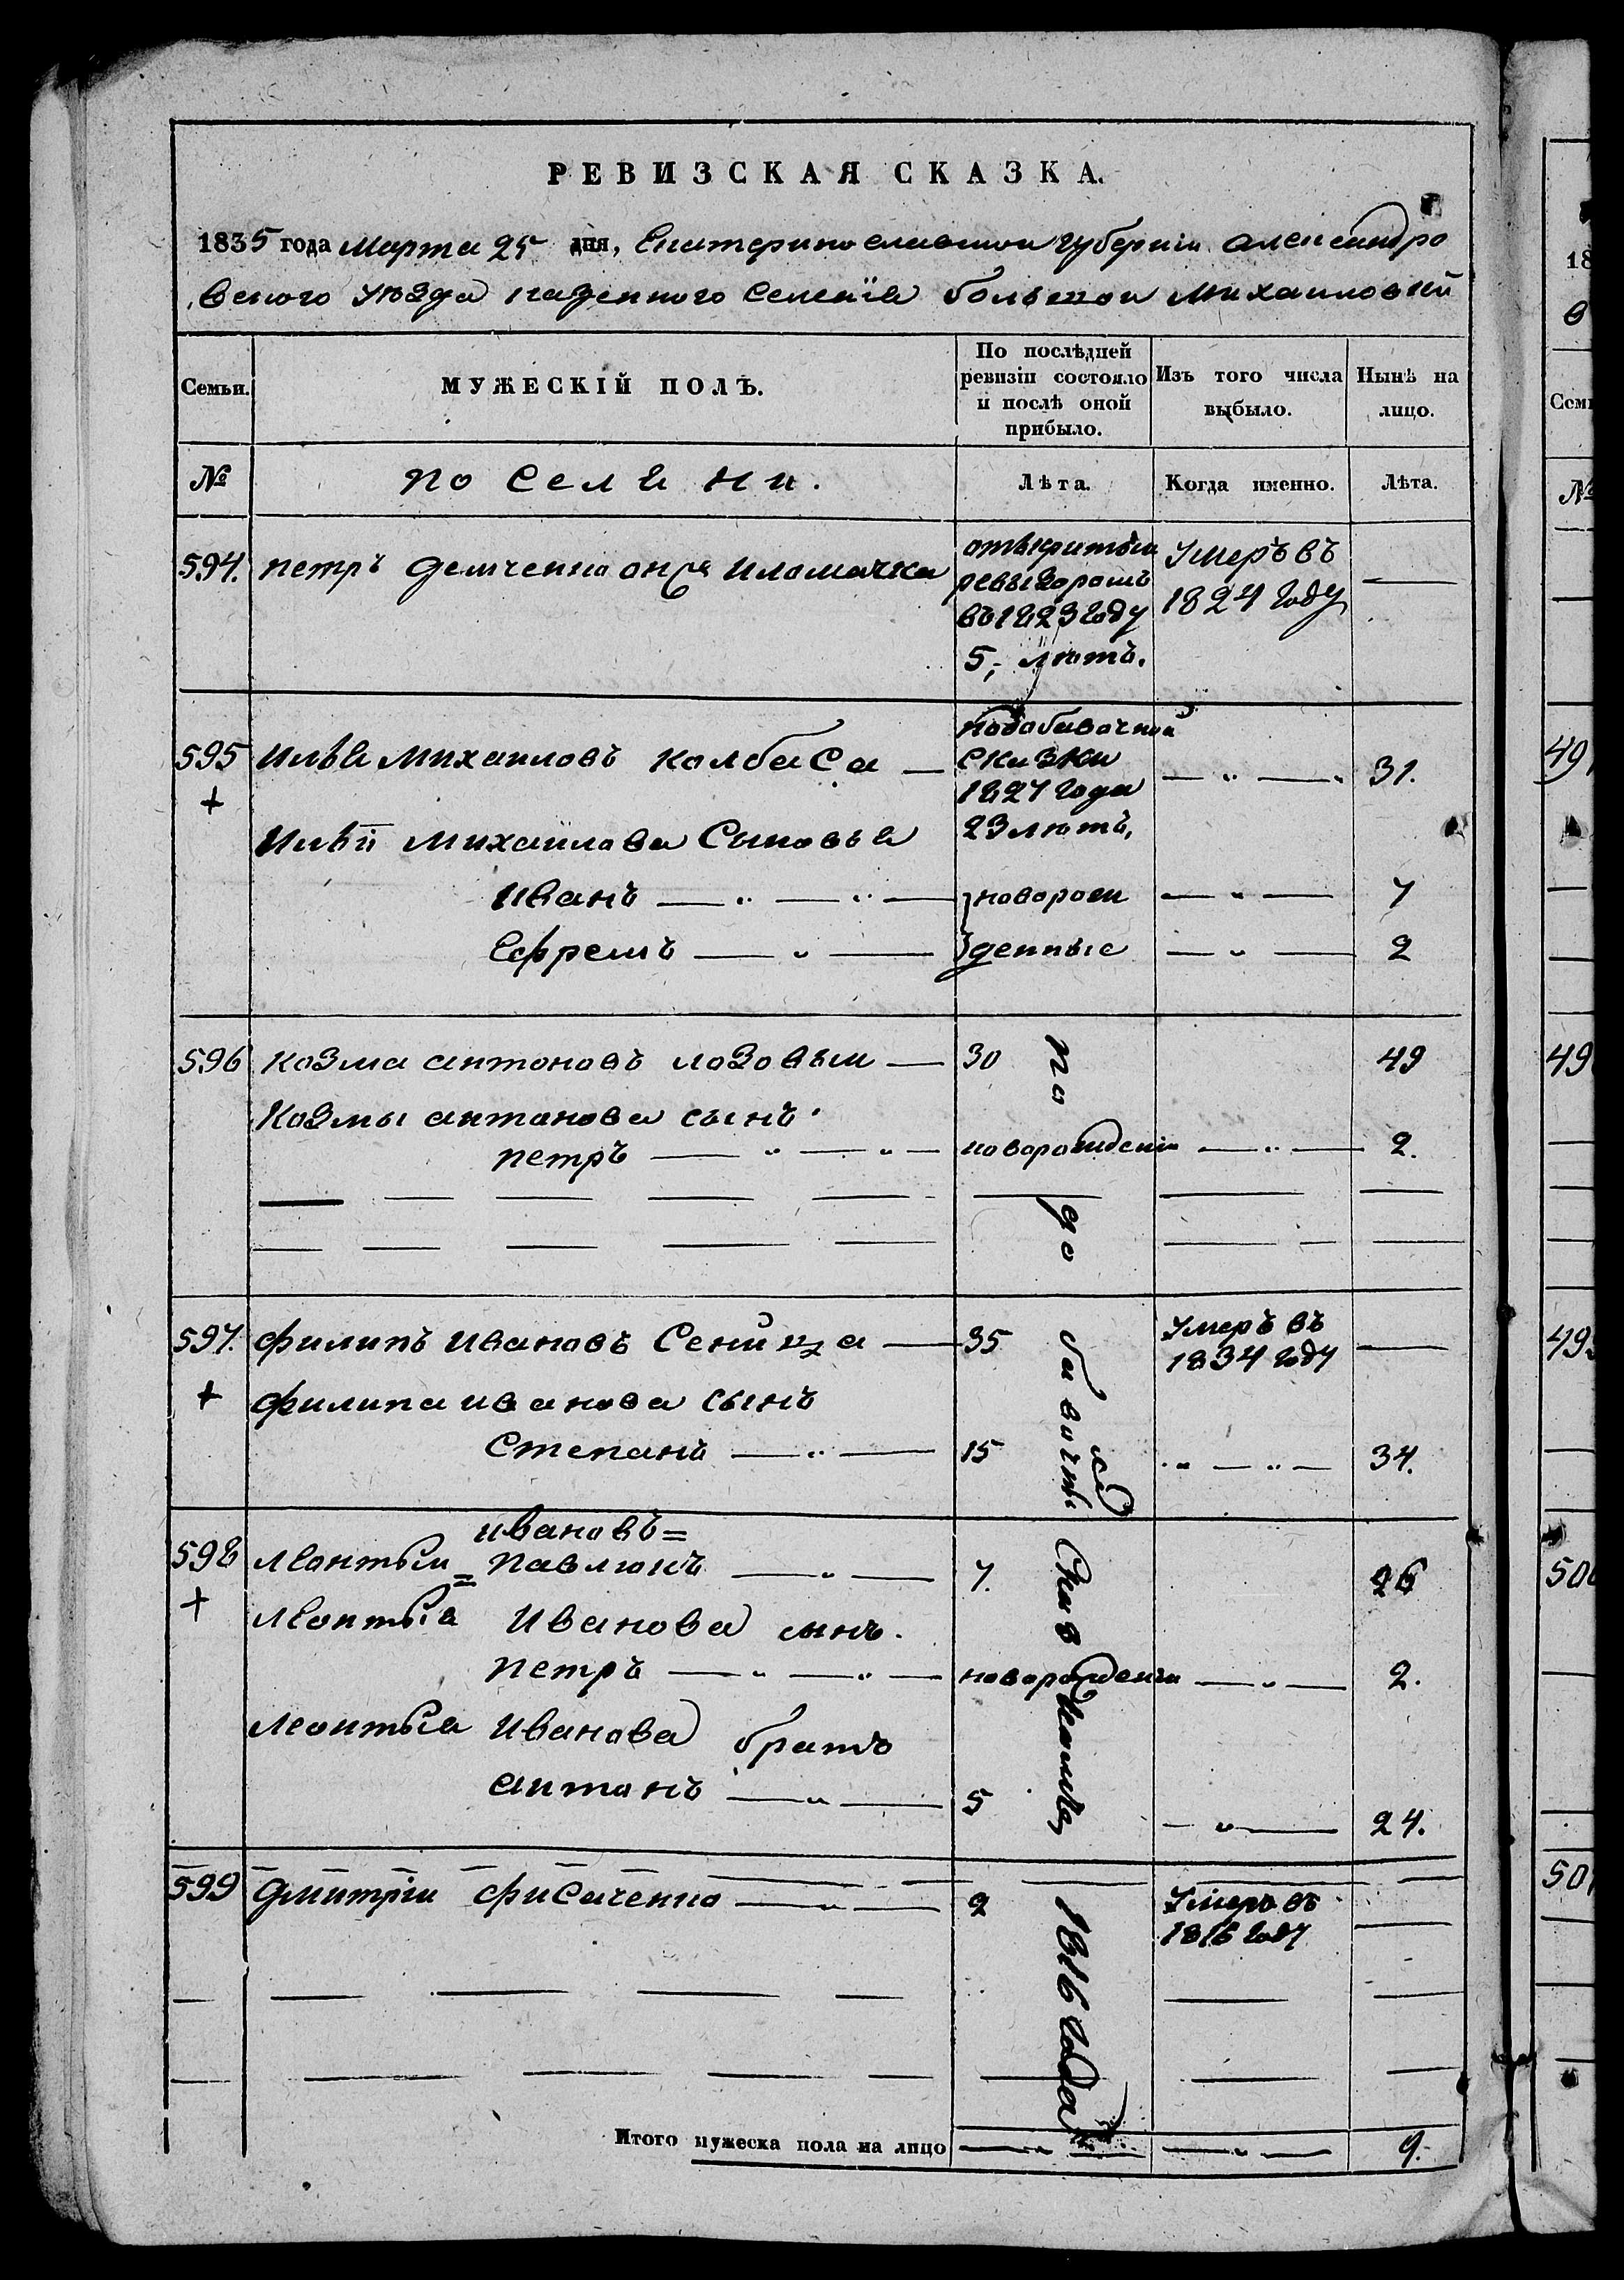 РЕВИЗСКАЯ СКАЗКА.
1835 года марта 25 дня, Екатеринославской губерніи Александро
вского уѣзда казенного селенїя большой михайловки
Семьи.
МУЖЕСКІЙ ПОЛЪ.
По послѣдней
ревизіи состояло
и послѣ оной
прибыло.
Изъ того числа
выбыло.
Нынѣ на
лицо.
№
поселяни.
Лѣта.
Когда именно.
Лѣта.
594. петръ демченко онже
открытый
ревизоромъ
въ 1823 году
5, лѣтъ.
Умеръ въ
1824 году
595 Илья михаиловъ колбаса
подобавочной
сказки
1827 года
23 лѣтъ,
31.
+
Ильи михаїлова сыновья
иванъ новорож 7
ефремъ денные 2
596 козма антоновъ лозовый 30 49
козмы антонова сынъ
петръ новорожденїй 2.
597. филипъ ивановъ Сеница 35
Умеръ въ
1834 году
+ филипа иванова сынъ
степанъ 15 34.
ивановъ=
598 леонтый= павлюкъ 7. 26
+ леонтыя иванова сынъ.
петръ новорожденїй 2.
леонтыя иванова братъ
антонъ 5 24.
599 дмитрїй фисаченко 2
Умеръ въ
1816 году
по добавочной сказки
1816 года
Итого мужеска пола на лицо 9.
18
в
Семь
№
49
49
49
50
50